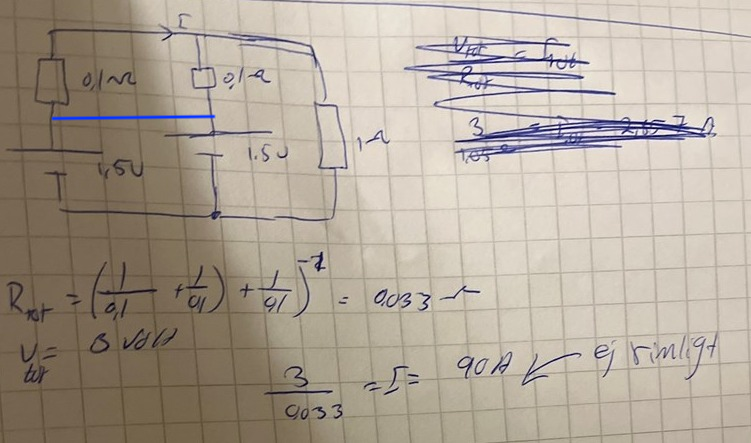 I
0,1Ω 0,1Ω
1,5V 1.5V 1Ω
R_tot = (1/0,1 + 1/0,1) + 1/0,1)^-1 = 0,033 Ω
U_tot = 3 volt
3/0,033 = I = 90A ↙ ej rimligt